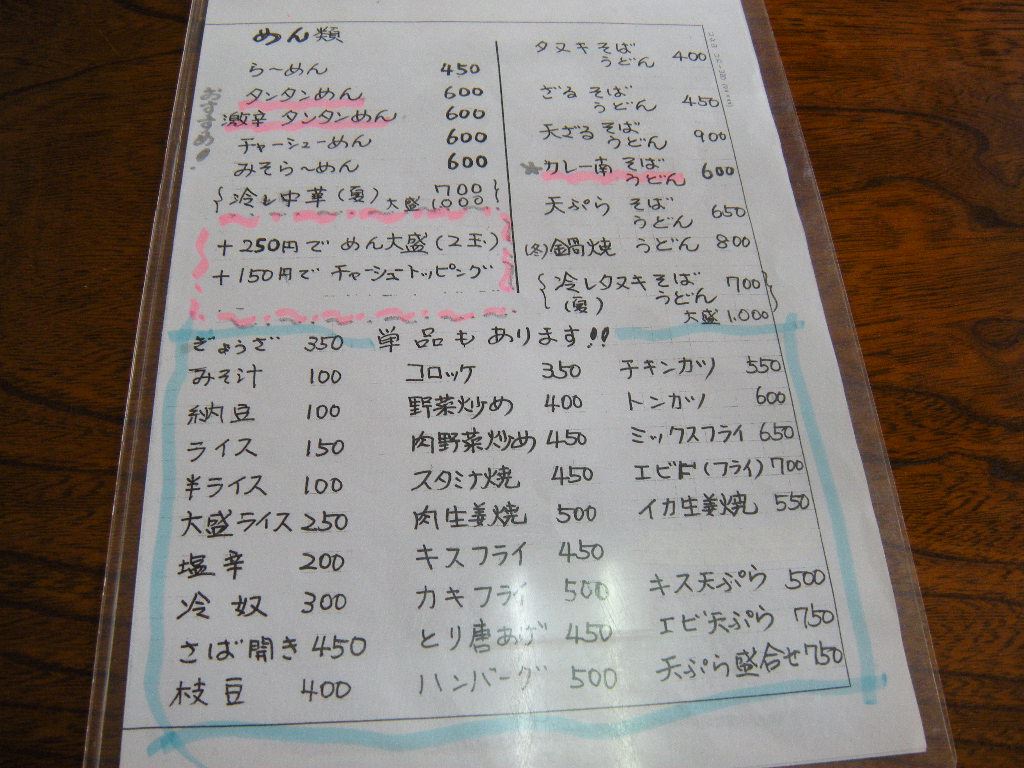 めん類
おすすめ!
らーめん 450
タンタンめん 600
激辛 タンタンめん 600
チャーシューめん 600
みそらーめん 600
{冷し中華(夏) 700
大盛 1,000}
+250円で めん大盛(2玉)
+150円で チャーシュートッピング
タヌキ そば
うどん 400
ざる そば
うどん 450
天ざる そば
うどん 900
★カレー南 そば
うどん 600
天ぷら そば
うどん 650
(冬)鍋焼 うどん 800
{冷しタヌキ そば
(夏) うどん 700
大盛 1,000}
単品もあります!!
ぎょうざ 350
みそ汁 100
納豆 100
ライス 150
半ライス 100
大盛ライス 250
塩辛 200
冷奴 300
さば開き 450
枝豆 400
コロッケ 350
野菜炒め 400
肉野菜炒め 450
スタミナ焼 450
肉生姜焼 500
キスフライ 450
カキフライ 500
とり唐あげ 450
ハンバーグ 500
チキンカツ 550
トンカツ 600
ミックスフライ 650
エビ(フライ) 700
イカ生姜焼 550
キス天ぷら 500
エビ天ぷら 750
天ぷら盛合せ 750